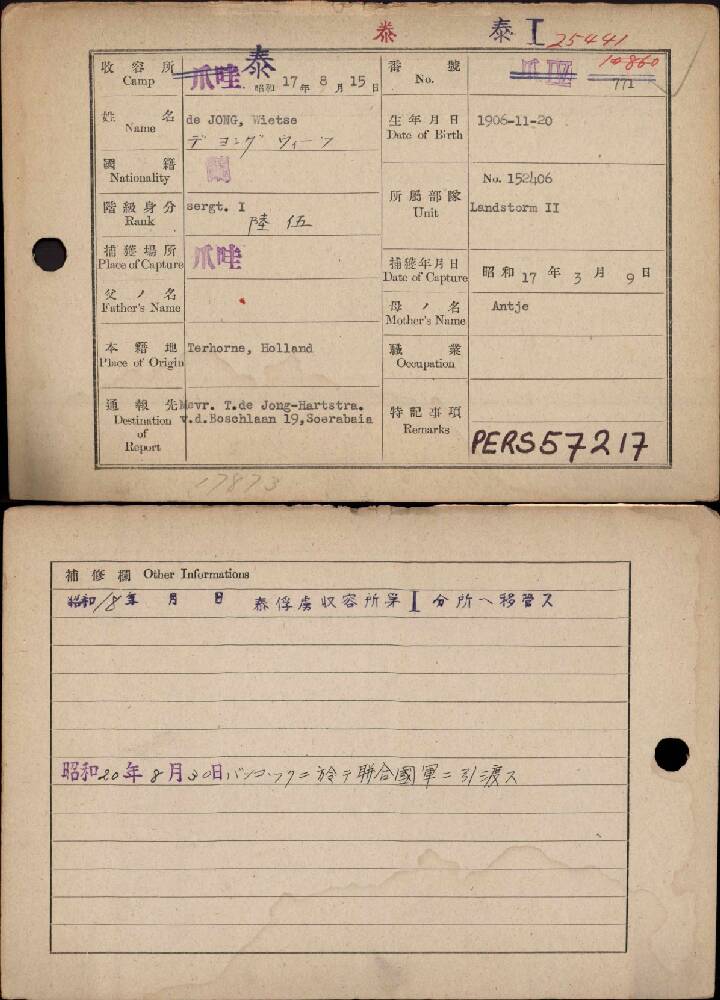 泰 泰 I 25441
收容所 Camp 爪哇 泰 昭和 17 年 8 月 15 日
番號 No. 10860 771
姓名 Name de JONG, Wietse
デ ヨング ウィーツ
生年月日 Date of Birth 1906-11-20
國籍 Nationality 蘭
所屬部隊 Unit No. 152406
Landstorm II
階級身分 Rank sergt. I
陸 伍
捕獲場所 Place of Capture 爪哇
捕獲年月日 Date of Capture 昭和 17 年 3 月 9 日
父ノ名 Father's Name
母ノ名 Mother's Name Antje
本籍地 Place of Origin Terhorne, Holland
職業 Occupation
通報先 Destination of Report Mevr. T.de Jong-Hartstra.
v.d.Boschlaan 19,Soerabaia
特記事項 Remarks
PERS57217
17873
補修欄 Other Informations
昭和18年 月 日 泰俘虜収容所第 I 分所ヘ移管ス
昭和20年8月30日バンコックニ於テ聯合國軍ニ引渡ス